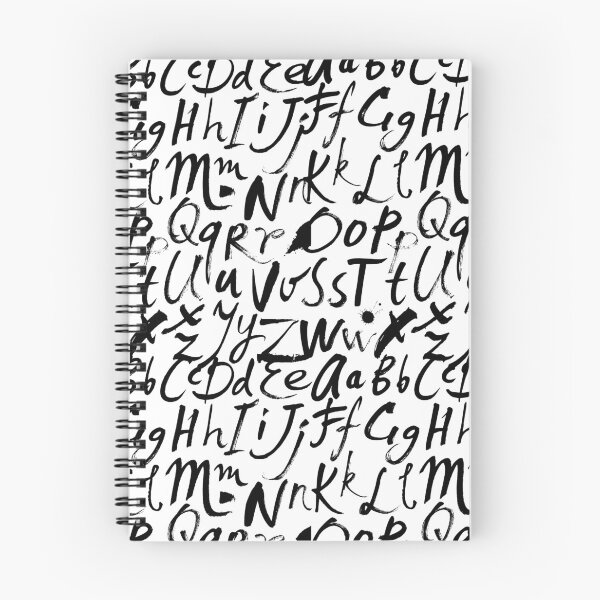 b C c D d E e a a B b C c
g H h I i J j F f G g H h
l M m N n K k L l M
Q q R r O o P p Q q
t U u V v S s T t U u
X x Y y Z W w X x
z z z
b C c D d E e a a B b C c
g H h I i J j F f G g H h
l M m N n K k L l M
Q q R r O o P p Q q